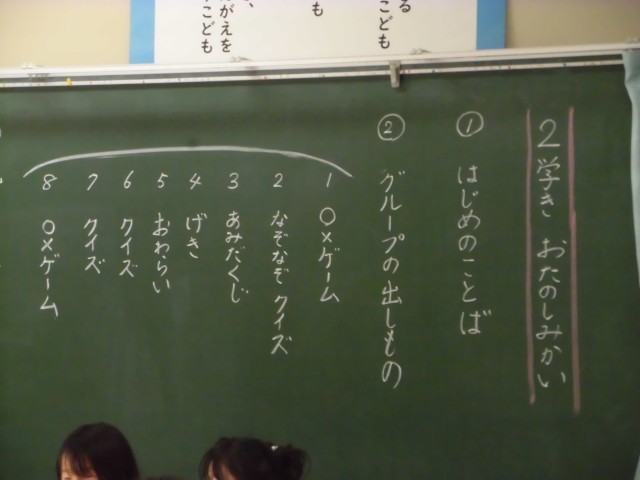 る
こども
も
え、
がえを
こども
2学き おたのしみかい
① はじめのことば
② グループの出しもの
1 ○×ゲーム
2 なぞなぞクイズ
3 あみだくじ
4 げき
5 おわらい
6 クイズ
7 クイズ
8 ○×ゲーム